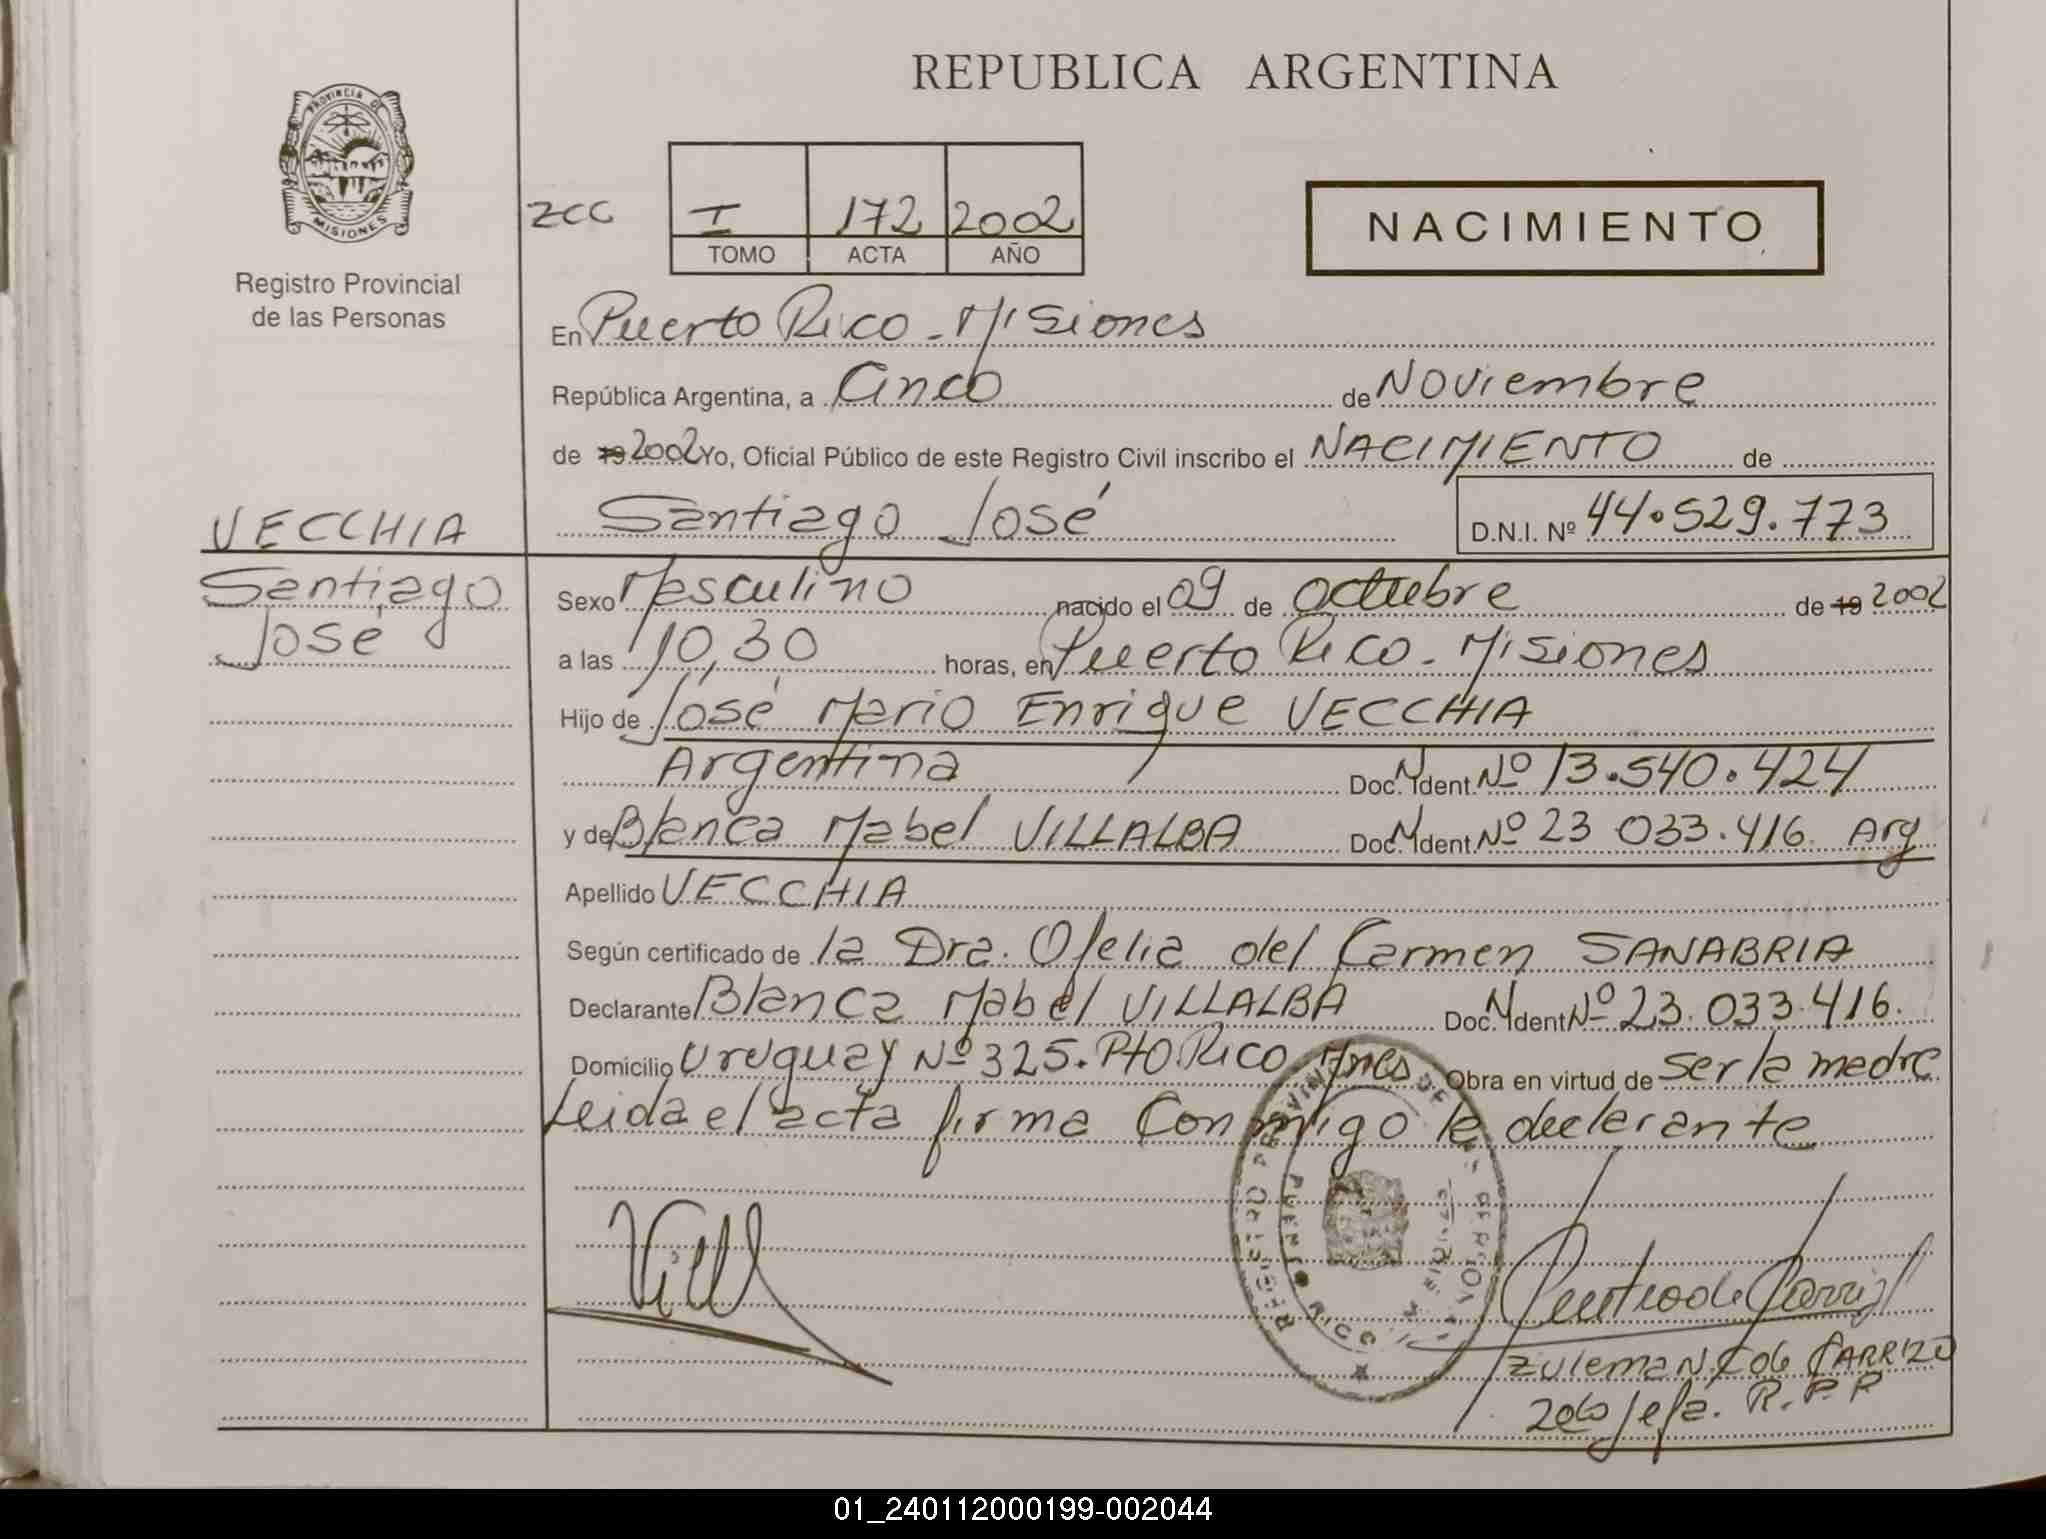 REPUBLICA ARGENTINA
PROVINCIA DE
MISIONES
Registro Provincial
de las Personas
ZCC
I 172 2002
TOMO ACTA AÑO
NACIMIENTO
En Puerto Rico - Misiones
República Argentina, a Cinco de Noviembre
de 19 2002 Yo, Oficial Público de este Registro Civil inscribo el NACIMIENTO de
Santiago José D.N.I. Nº 44.529.773
VECCHIA
Santiago
José
Sexo Masculino nacido el 09 de octubre de 19 2002
a las 10,30 horas, en Puerto Rico - Misiones
Hijo de José Mario Enrique VECCHIA
Argentina Doc. N. Ident. Nº 13.540.424
y de Blanca Mabel VILLALBA Doc. N. Ident. Nº 23 033.416. Arg
Apellido VECCHIA
Según certificado de la Dra. Ofelia del Carmen SANABRIA
Declarante Blanca Mabel VILLALBA Doc. N. Ident Nº 23.033.416.
Domicilio Uruguay Nº 325. Pto. Rico Mnes Obra en virtud de ser la madre
Leida el acta firma Conmigo la declarante
REGISTRO PROVINCIAL DE LAS PERSONAS
PUERTO RICO
Vill
ZULEMA N. F. de CARRIZO
2da Jefa. R.P.P
01_240112000199-002044